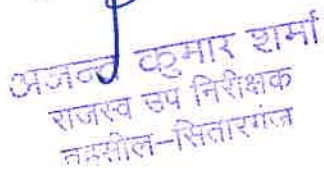 अजन्ट कुमार शर्मा
राजस्व उप निरीक्षक
तहसील-सितारगंज